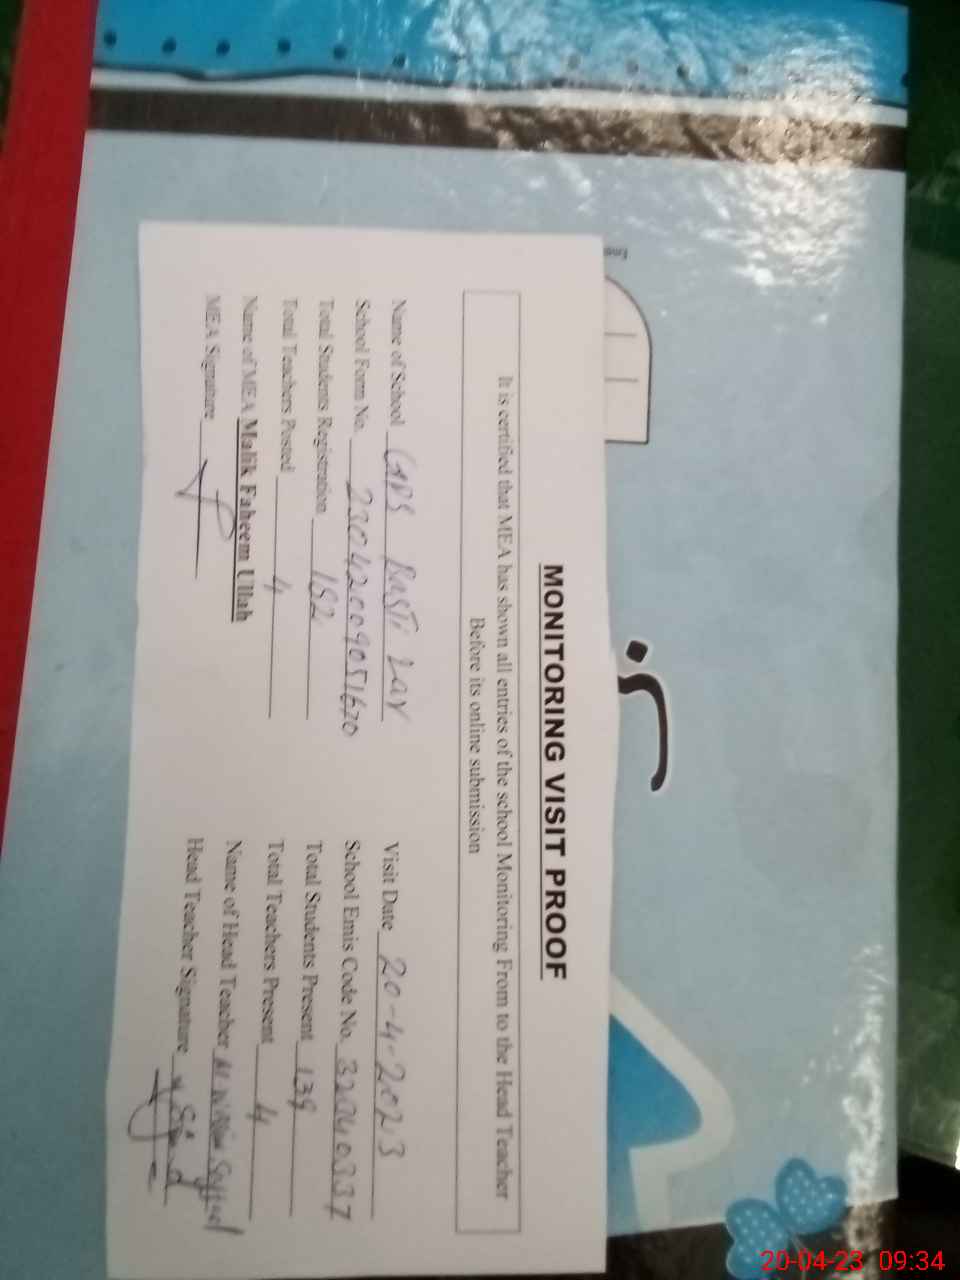 MONITORING VISIT PROOF
It is certified that MEA has shown all entries of the school Monitoring From to the Head Teacher
Before its online submission
Name of School GPS Basti Lar
Visit Date 20-4-2023
School Form No. 23042009051620
School Emis Code No. 32040337
Total Students Registration 152
Total Students Present 139
Total Teachers Posted 4
Total Teachers Present 4
Name of MEA Malik Faheem Ullah
Name of Head Teacher M
MEA Signature
Head Teacher Signature
20-04-23 09:34